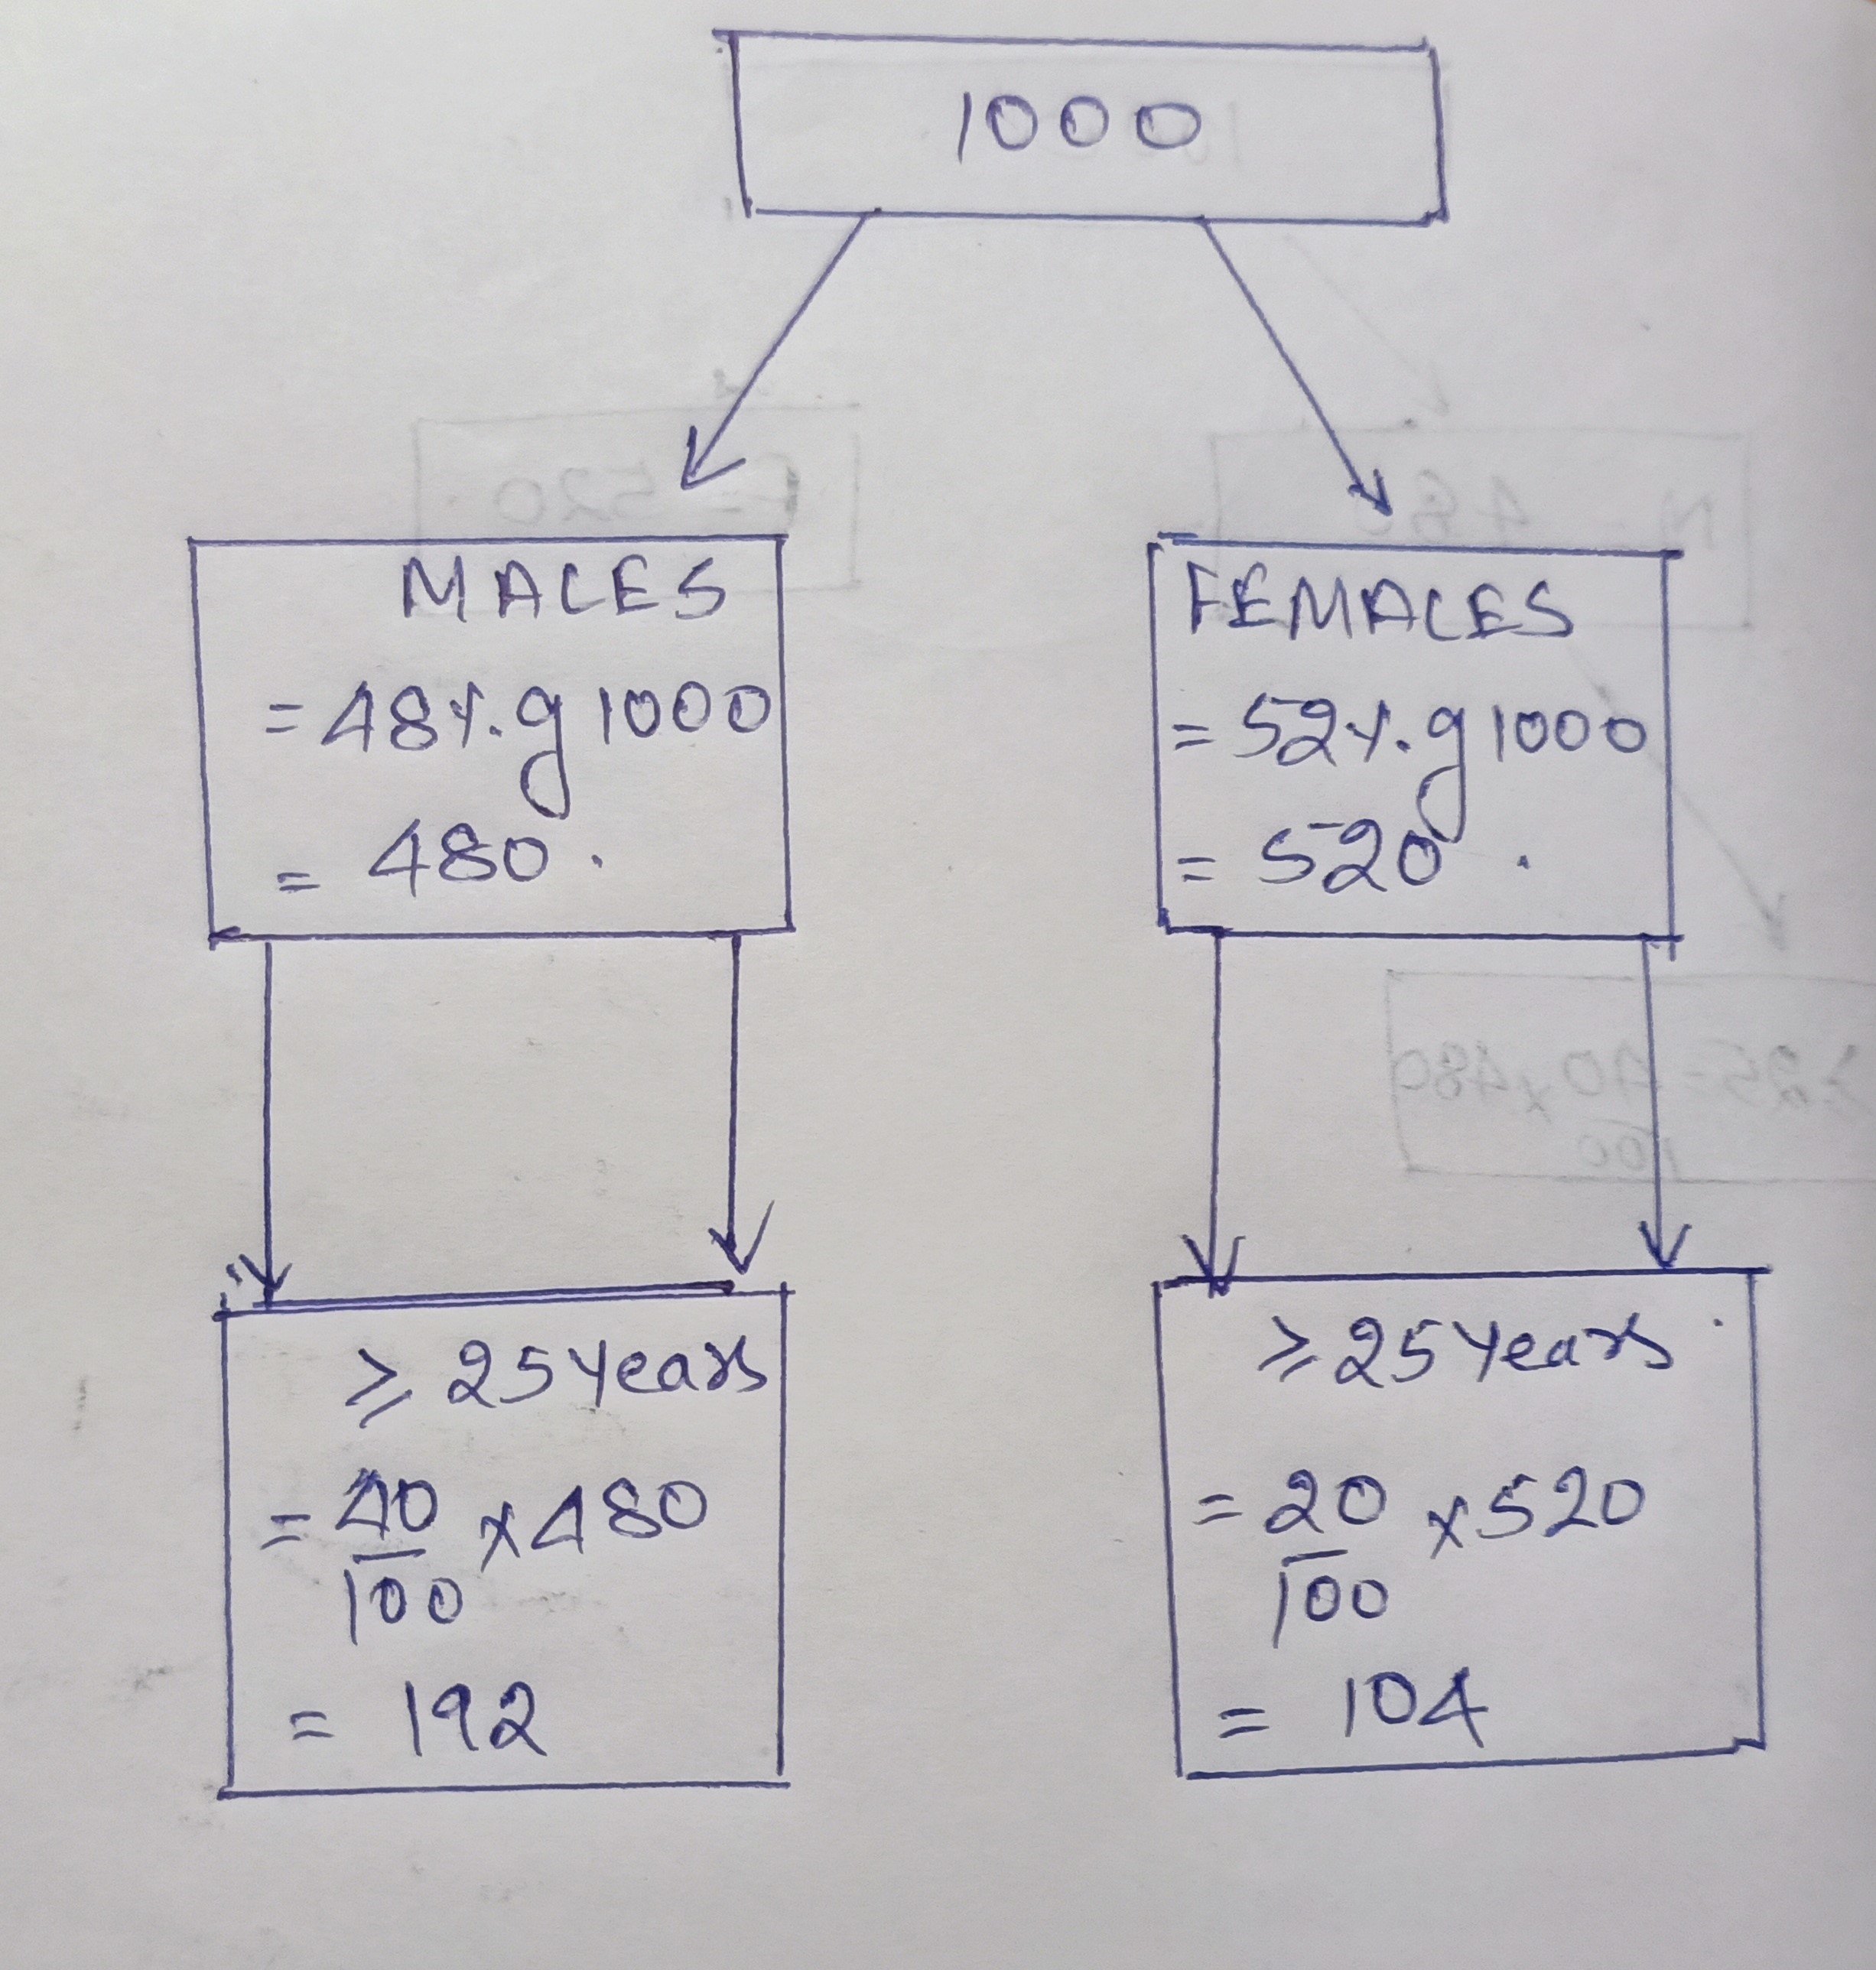 1000
MALES
= 48% of 1000
= 480.
FEMALES
= 52% of 1000
= 520.
≥ 25 Years
= 40/100 x 480
= 192
≥ 25 Years
= 20/100 x 520
= 104